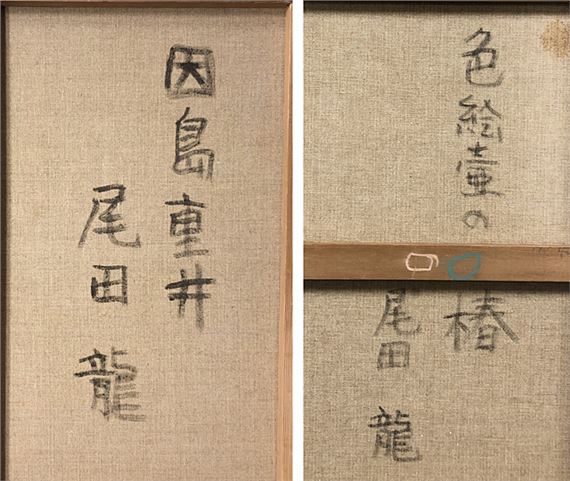 因島重井
尾田 龍
色絵壷の
椿
尾田 龍